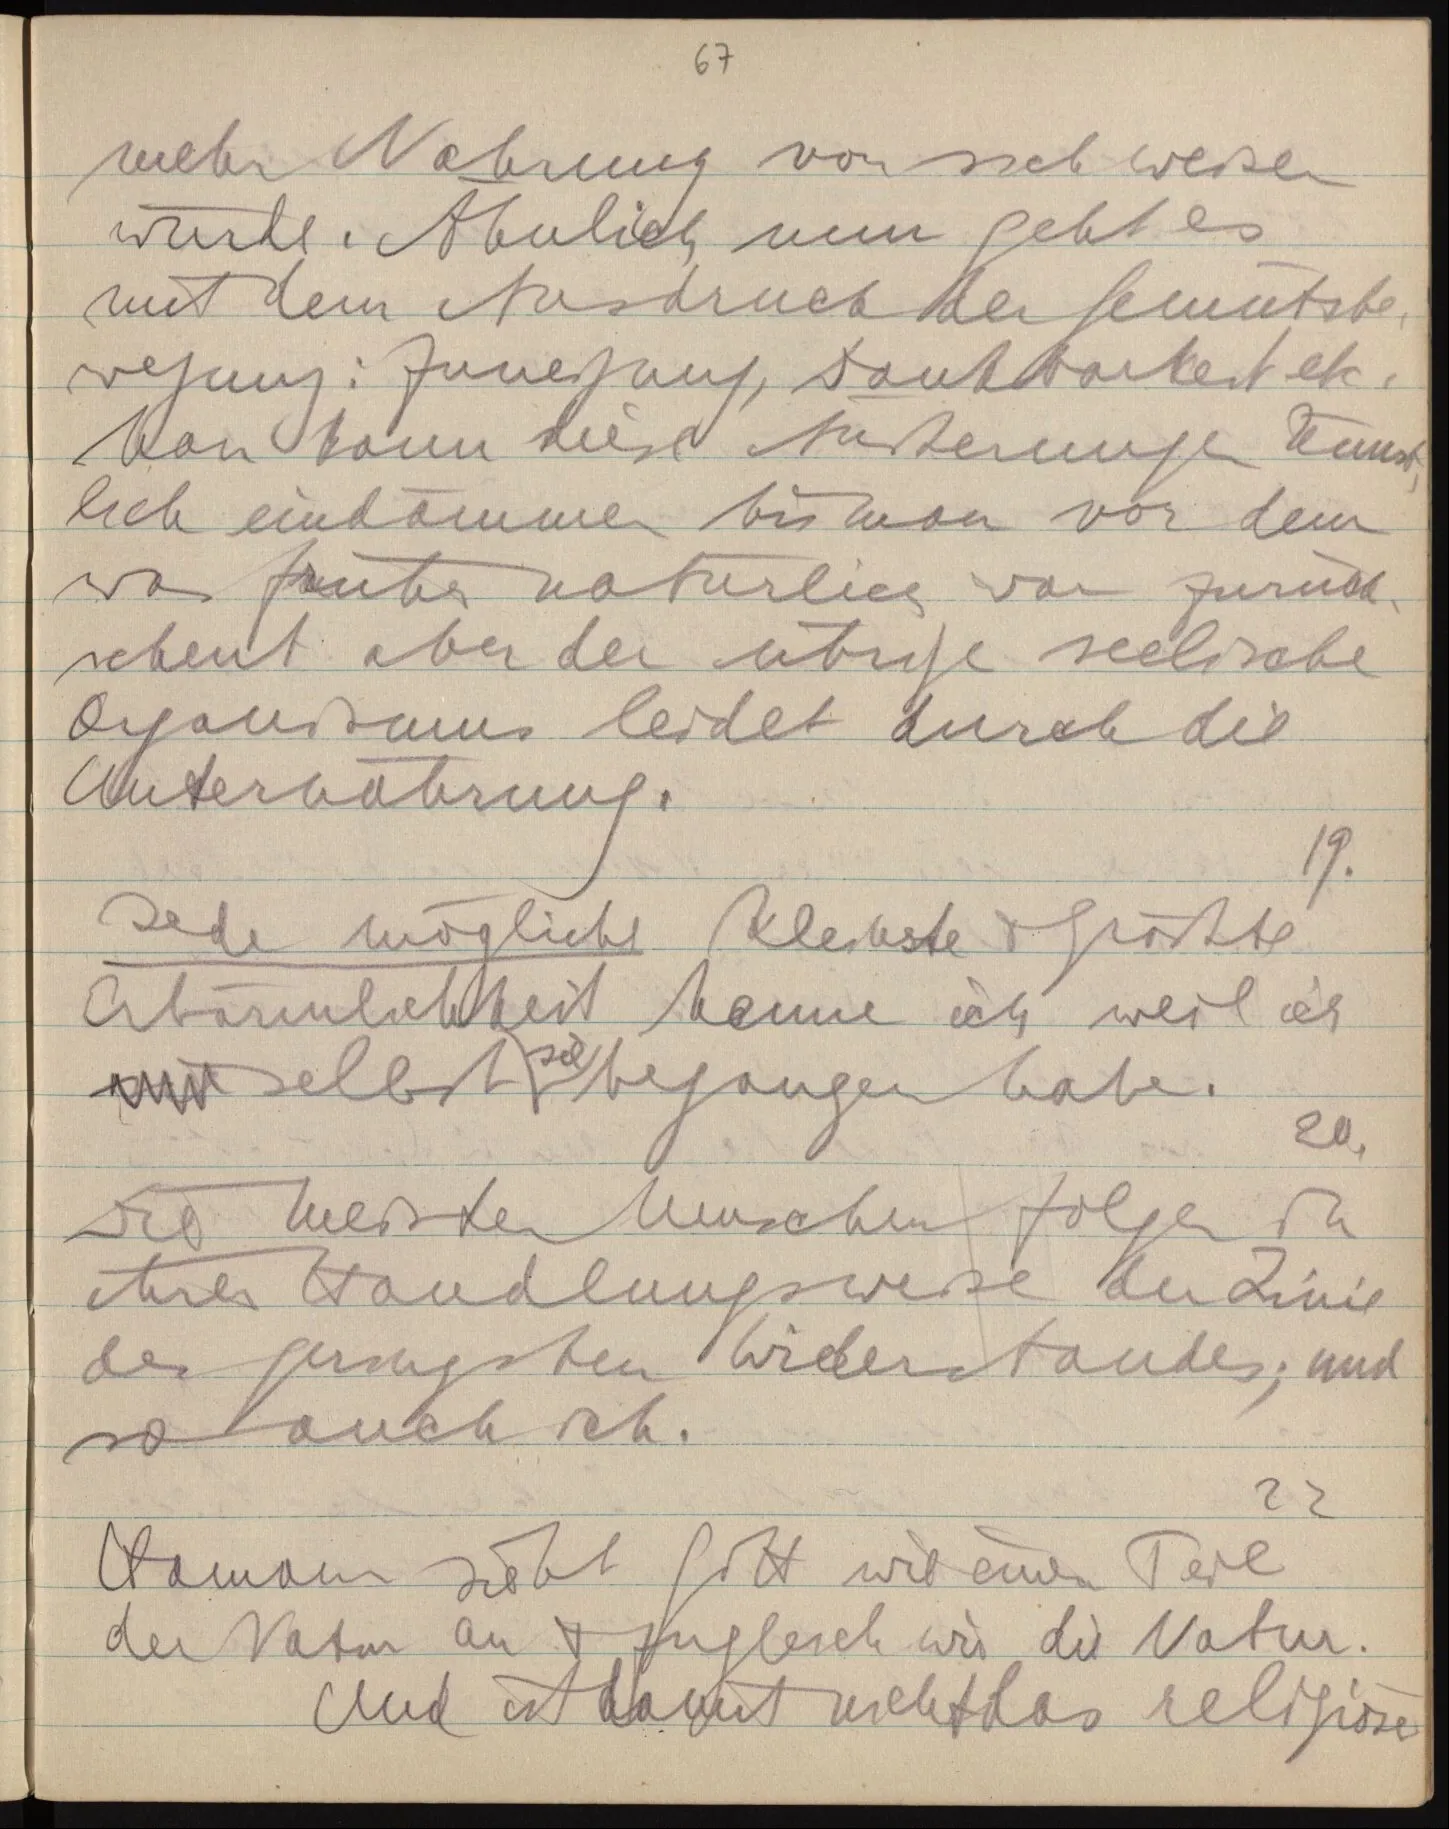 67
mehr Nahrung von sich weisen
würde. Ähnlich nun geht es
mit dem Ausdruck der Gemütsbe-
wegung: Zuneigung, Dankbarkeit etc.
Man kann diese Äußerungen künst-
lich eindämmen bis man vor dem
was früher natürlich war zurück-
scheut aber der übrige seelische
Organismus leidet durch die
Unternährung.
19.
Jede mögliche kleinste & größte
Erbärmlichkeit kenne ich weil ich
selbst sie begangen habe.
20.
Die meisten Menschen folgen in
ihrer Handlungsweise der Linie
des geringsten Widerstandes; und
so auch ich.
22
Hamann sieht Gott wie einen Teil
der Natur an & zugleich wie die Natur.
Und ist damit nicht das religiöse